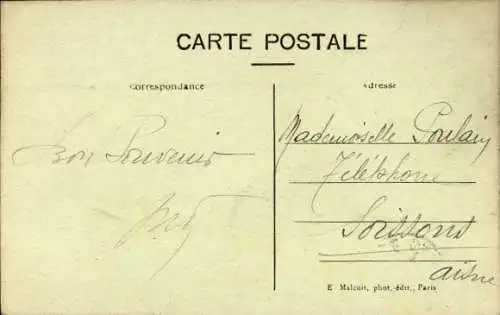 CARTE POSTALE
Correspondance
Adresse
Bon Souvenir
Mademoiselle Poulain
Téléphone
Soissons
Aisne
E Malcuit, phot.-édit., Paris